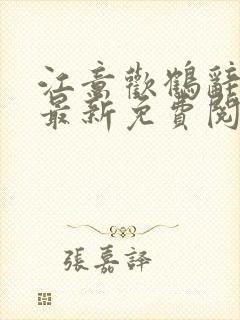 江意歡鶴辭
最新免費閱
張嘉譯